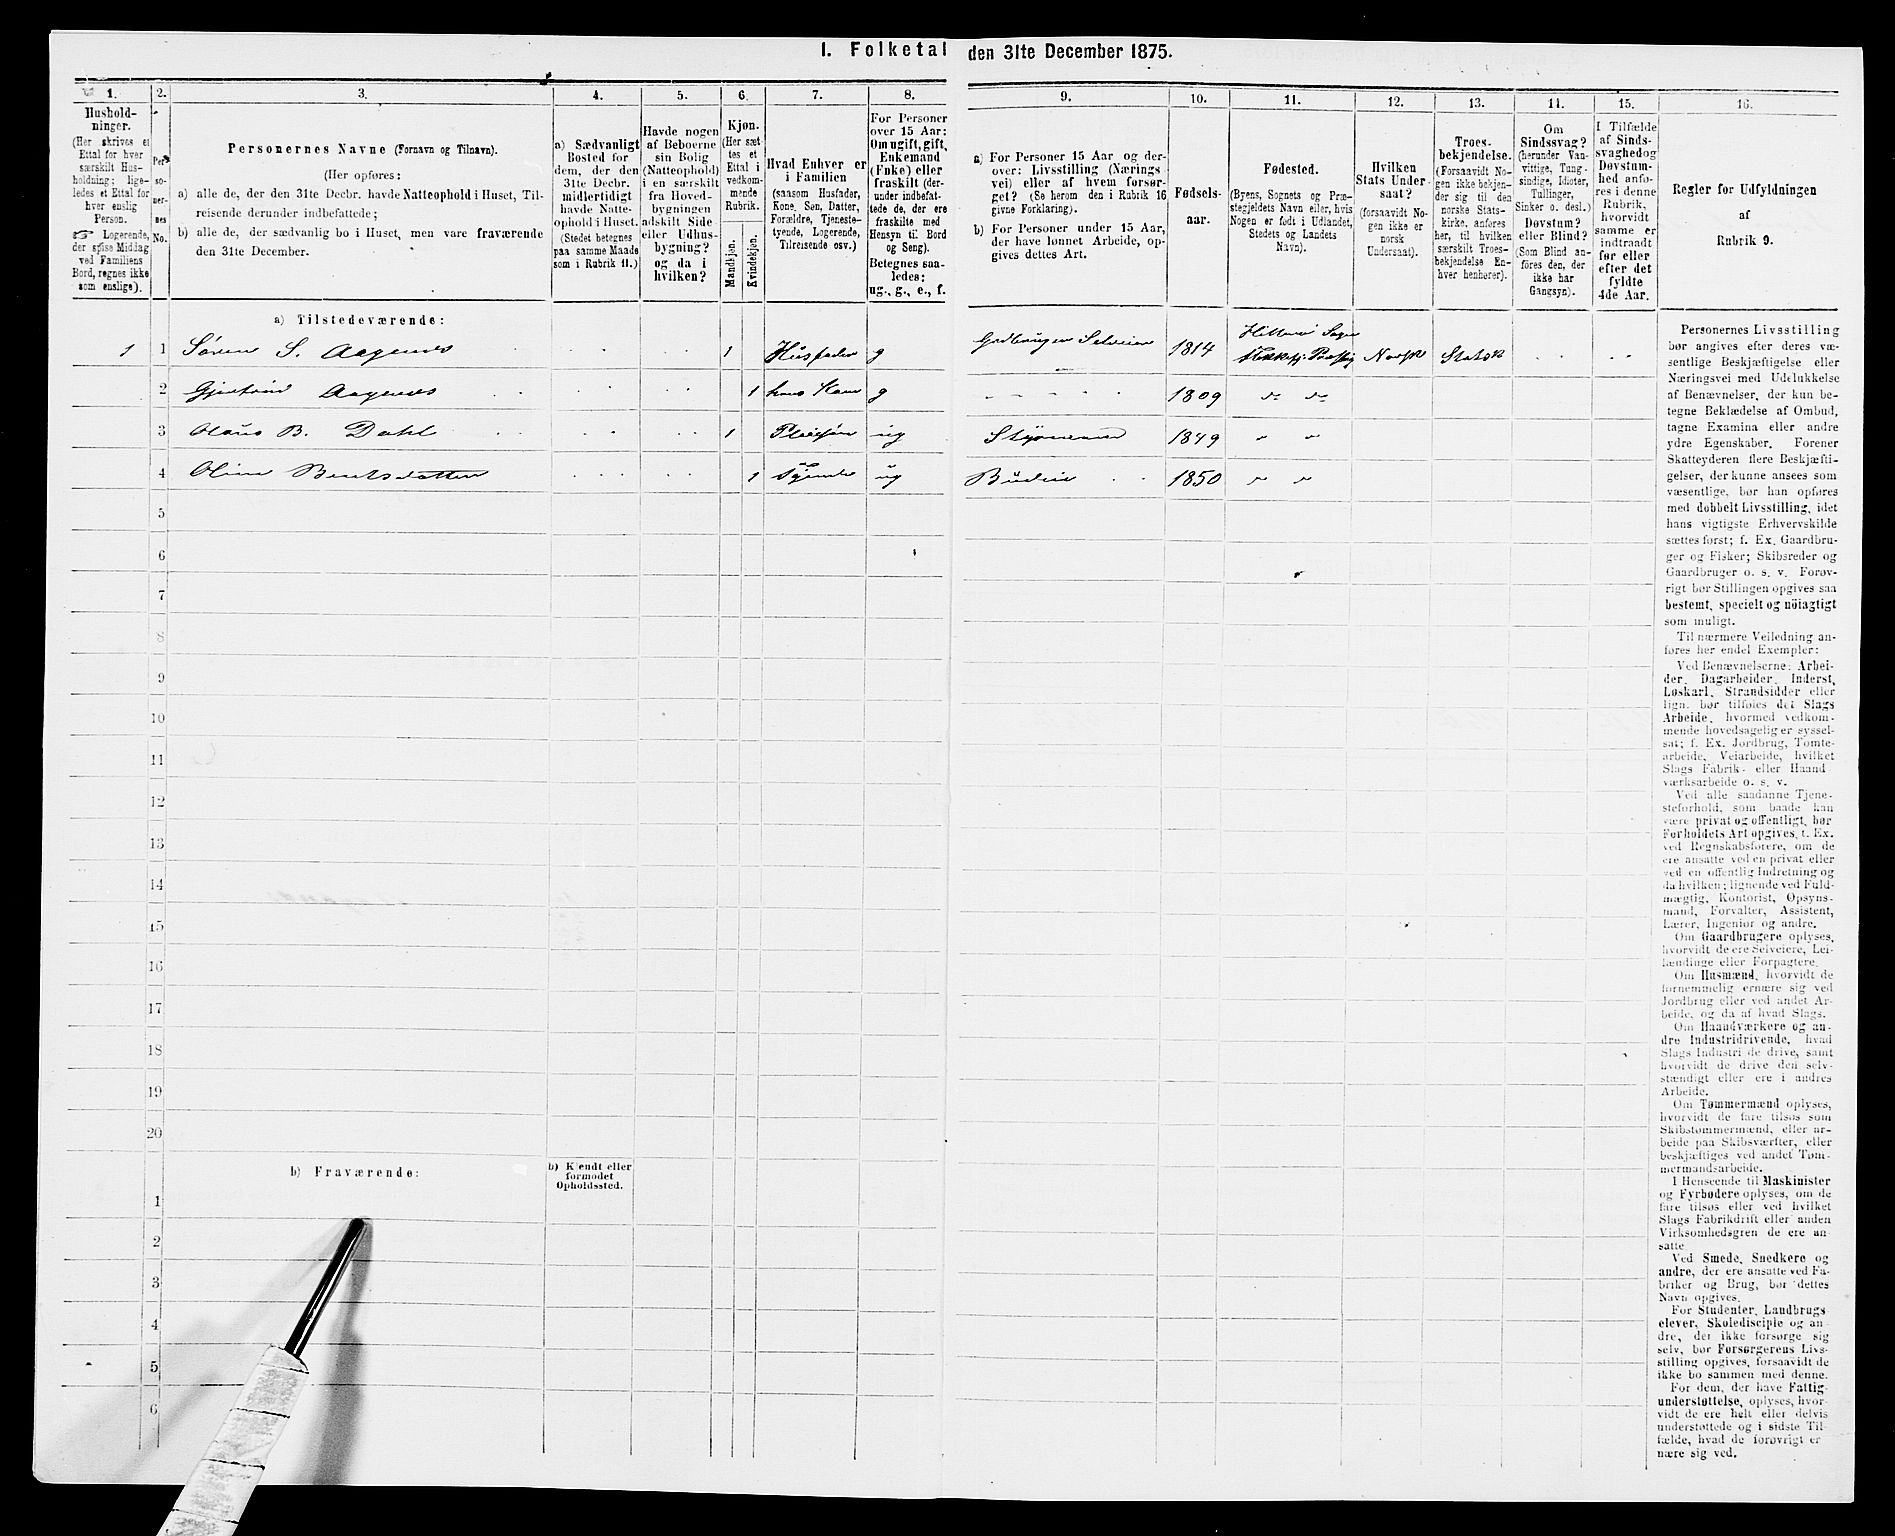 I. Folketal den 31te December 1875.
1. 2. 3. 4. 5. 6. 7. 8. 9. 10. 11. 12. 13. 14. 15. 16.
Hushold-
ninger.
(Her skrives et
Ettal for hver
særskilt Hus-
holdning; lige-
ledes et Ettal for
hver enslig
Person.
☞ Logerende,
der spise Middag
ved Familiens
Bord, regnes ikke
som enslige).
Per-
so-
ner-
nes
No.
Personernes Navne (Fornavn og Tilnavn).
(Her opføres:
a) alle de, der den 31te Decbr. havde Natteophold i Huset, Til-
reisende derunder indbefattede;
b) alle de, der sædvanlig bo i Huset, men vare fraværende
den 31te December.
a) Sædvanligt
Bosted for
dem, der den
31te Decbr.
midlertidigt
havde Natte-
ophold i Huset.
(Stedet betegnes
paa samme Maade
som i Rubrik 11.)
Havde nogen
af Beboerne
sin Bolig
(Natteophold)
i en særskilt
fra Hoved-
bygningen
adskilt Side
eller Udhus-
bygning?
og da i
hvilken?
Kjøn.
(Her sæt
tes et
Ettal i
vedkom-
mende
Rubrik.
Mandkjøn.
Kvindekjøn.
Hvad Enhver er
i Familien
(saasom Husfader,
Kone, Søn, Datter,
Forældre, Tjeneste-
tyende, Logerende,
Tilreisende osv.)
For Personer
over 15 Aar:
Om ugift, gift,
Enkemand
(Enke) eller
fraskilt (der-
under indbefat-
tede de, der ere
fraskilte med
Hensyn til Bord
og Seng).
Betegnes saa-
ledes:
ug., g., e., f.
a) For Personer 15 Aar og der-
over: Livsstilling (Nærings
vei) eller af hvem forsør-
get? (Se herom den i Rubrik 16
givne Forklaring).
b) For Personer under 15 Aar,
der have lønnet Arbeide, op-
gives dettes Art.
Fødsels-
aar.
Fødested.
(Byens, Sognets og Præ-
stegjeldets Navn eller, hvis
Nogen er født i Udlandet,
Stedets og Landets
Navn).
Hvilken
Stats Under-
saat?
(forsaavidt No-
gen ikke er
norsk
Undersaat).
Troes-
bekjendelse.
(Forsaavidt No-
gen ikke bekjen-
der sig til den
norske Stats-
kirke, anføres
her, til hvilken
særskilt Troes-
bekjendelse En-
hver henhører).
Om
Sindssvag?
(herunder Van-
vittige, Tung-
sindige, Idioter,
Tullinger,
Sinker o. desl.)
Døvstum?
eller Blind?
(Som Blind an-
føres den, der
ikke har
Gangsyn).
I Tilfælde
af Sinds-
svaghed og
Døvstum-
hed anfø-
res i denne
Rubrik,
hvorvidt
samme er
indtraadt
før eller
efter det
fyldte
4de Aar.
Regler for Udfyldningen
af
Rubrik 9.
a) Tilstedeværende:
1 1 Søren S. Aagenes 1 Husfader g Grdbruger Selveier 1814 Sogn Norsk Statsk
2 Aagenes 1 hans Kone g 1809
3 Olaus B. Dahl 1 Pleiesøn ug Styrmand 1849
4 Oline Bentsdatter 1 Tyende ug Budeie 1850
5
6
7
8
9
10
11
12
13
14
15
16
17
18
19
20
b) Fraværende:
b) Kjendt eller
formodet
Opholdssted.
1
2
3
4
5
6
Personernes Livsstilling
bør angives efter deres væ-
sentlige Beskjæftigelse eller
Næringsvei med Udelukkelse
af Benævnelser, der kun be-
tegne Beklædelse af Ombud,
tagne Examina eller andre
ydre Egenskaber. Forener
Skatteyderen flere Beskjæfti-
gelser, der kunne ansees som
væsentlige, bør han opføres
med dobbelt Livsstilling, idet
hans vigtigste Erhvervskilde
sættes først; f. Ex. Gaardbru-
ger og Fisker; Skibsreder og
Gaardbruger o. s. v. Forøv-
rigt bør Stillingen opgives saa
bestemt, specielt og nöiagtigt
som muligt.
Til nærmere Veiledning an-
føres her endel Exempler:
Ved Benævnelserne: Arbei-
der, Dagarbeider, Inderst,
Løskarl, Strandsidder eller
lign. bør tilføies det Slags
Arbeide, hvormed vedkom-
mende hovedsagelig er syssel-
sat; f. Ex. Jordbrug, Tomte-
arbeide, Veiarbeide, hvilket
Slags Fabrik- eller Haand-
værksarbeide o. s. v.
Ved alle saadanne Tjene-
steforhold, som baade kan
være privat og offentligt, bør
Forholdets Art opgives, f. Ex.
ved Regnskabsførere, om de
ere ansatte ved en privat eller
ved en offentlig Indretning og
da hvilken; lignende ved Fuld-
mægtig, Kontorist, Opsyns-
mand, Forvalter, Assistent,
Lærer, Ingeniør og andre.
Om Gaardbrugere oplyses,
hvorvidt de ere Selveiere, Lei-
lændinge eller Forpagtere.
Om Husmænd, hvorvidt de
fornemmelig ernære sig ved
Jordbrug eller ved andet Ar-
beide, og da af hvad Slags.
Om Haandværkere og an-
dre Industridrivende, hvad
Slags Industri de drive, samt
hvorvidt de drive den selv-
stændigt eller ere i andres
Arbeide.
Om Tømmermænd oplyses,
hvorvidt de fare tilsøs som
Skibstømmermænd, eller ar-
beide paa Skibsværfter, eller
beskjæftiges ved andet Tøm-
mermandsarbeide.
I Henseende til Maskinister
og Fyrbødere oplyses, om de
fare tilsøs eller ved hvilket
Slags Fabrikdrift eller anden
Virksomhedsgren de ere an-
satte.
Ved Smede, Snedkere og
andre, der ere ansatte ved Fa-
briker og Brug, bør dettes
Navn opgives.
For Studenter, Landbrugs-
elever, Skoledisciple og an-
dre, der ikke forsørge sig
selv, bør Forsørgerens Livs-
stilling opgives, forsaavidt de
ikke bo sammen med denne.
For dem, der have Fattig-
understøttelse, oplyses, hvor-
vidt de ere helt eller delvis
understøttede og i sidste Til-
fælde, hvad de forøvrigt er-
nære sig ved.